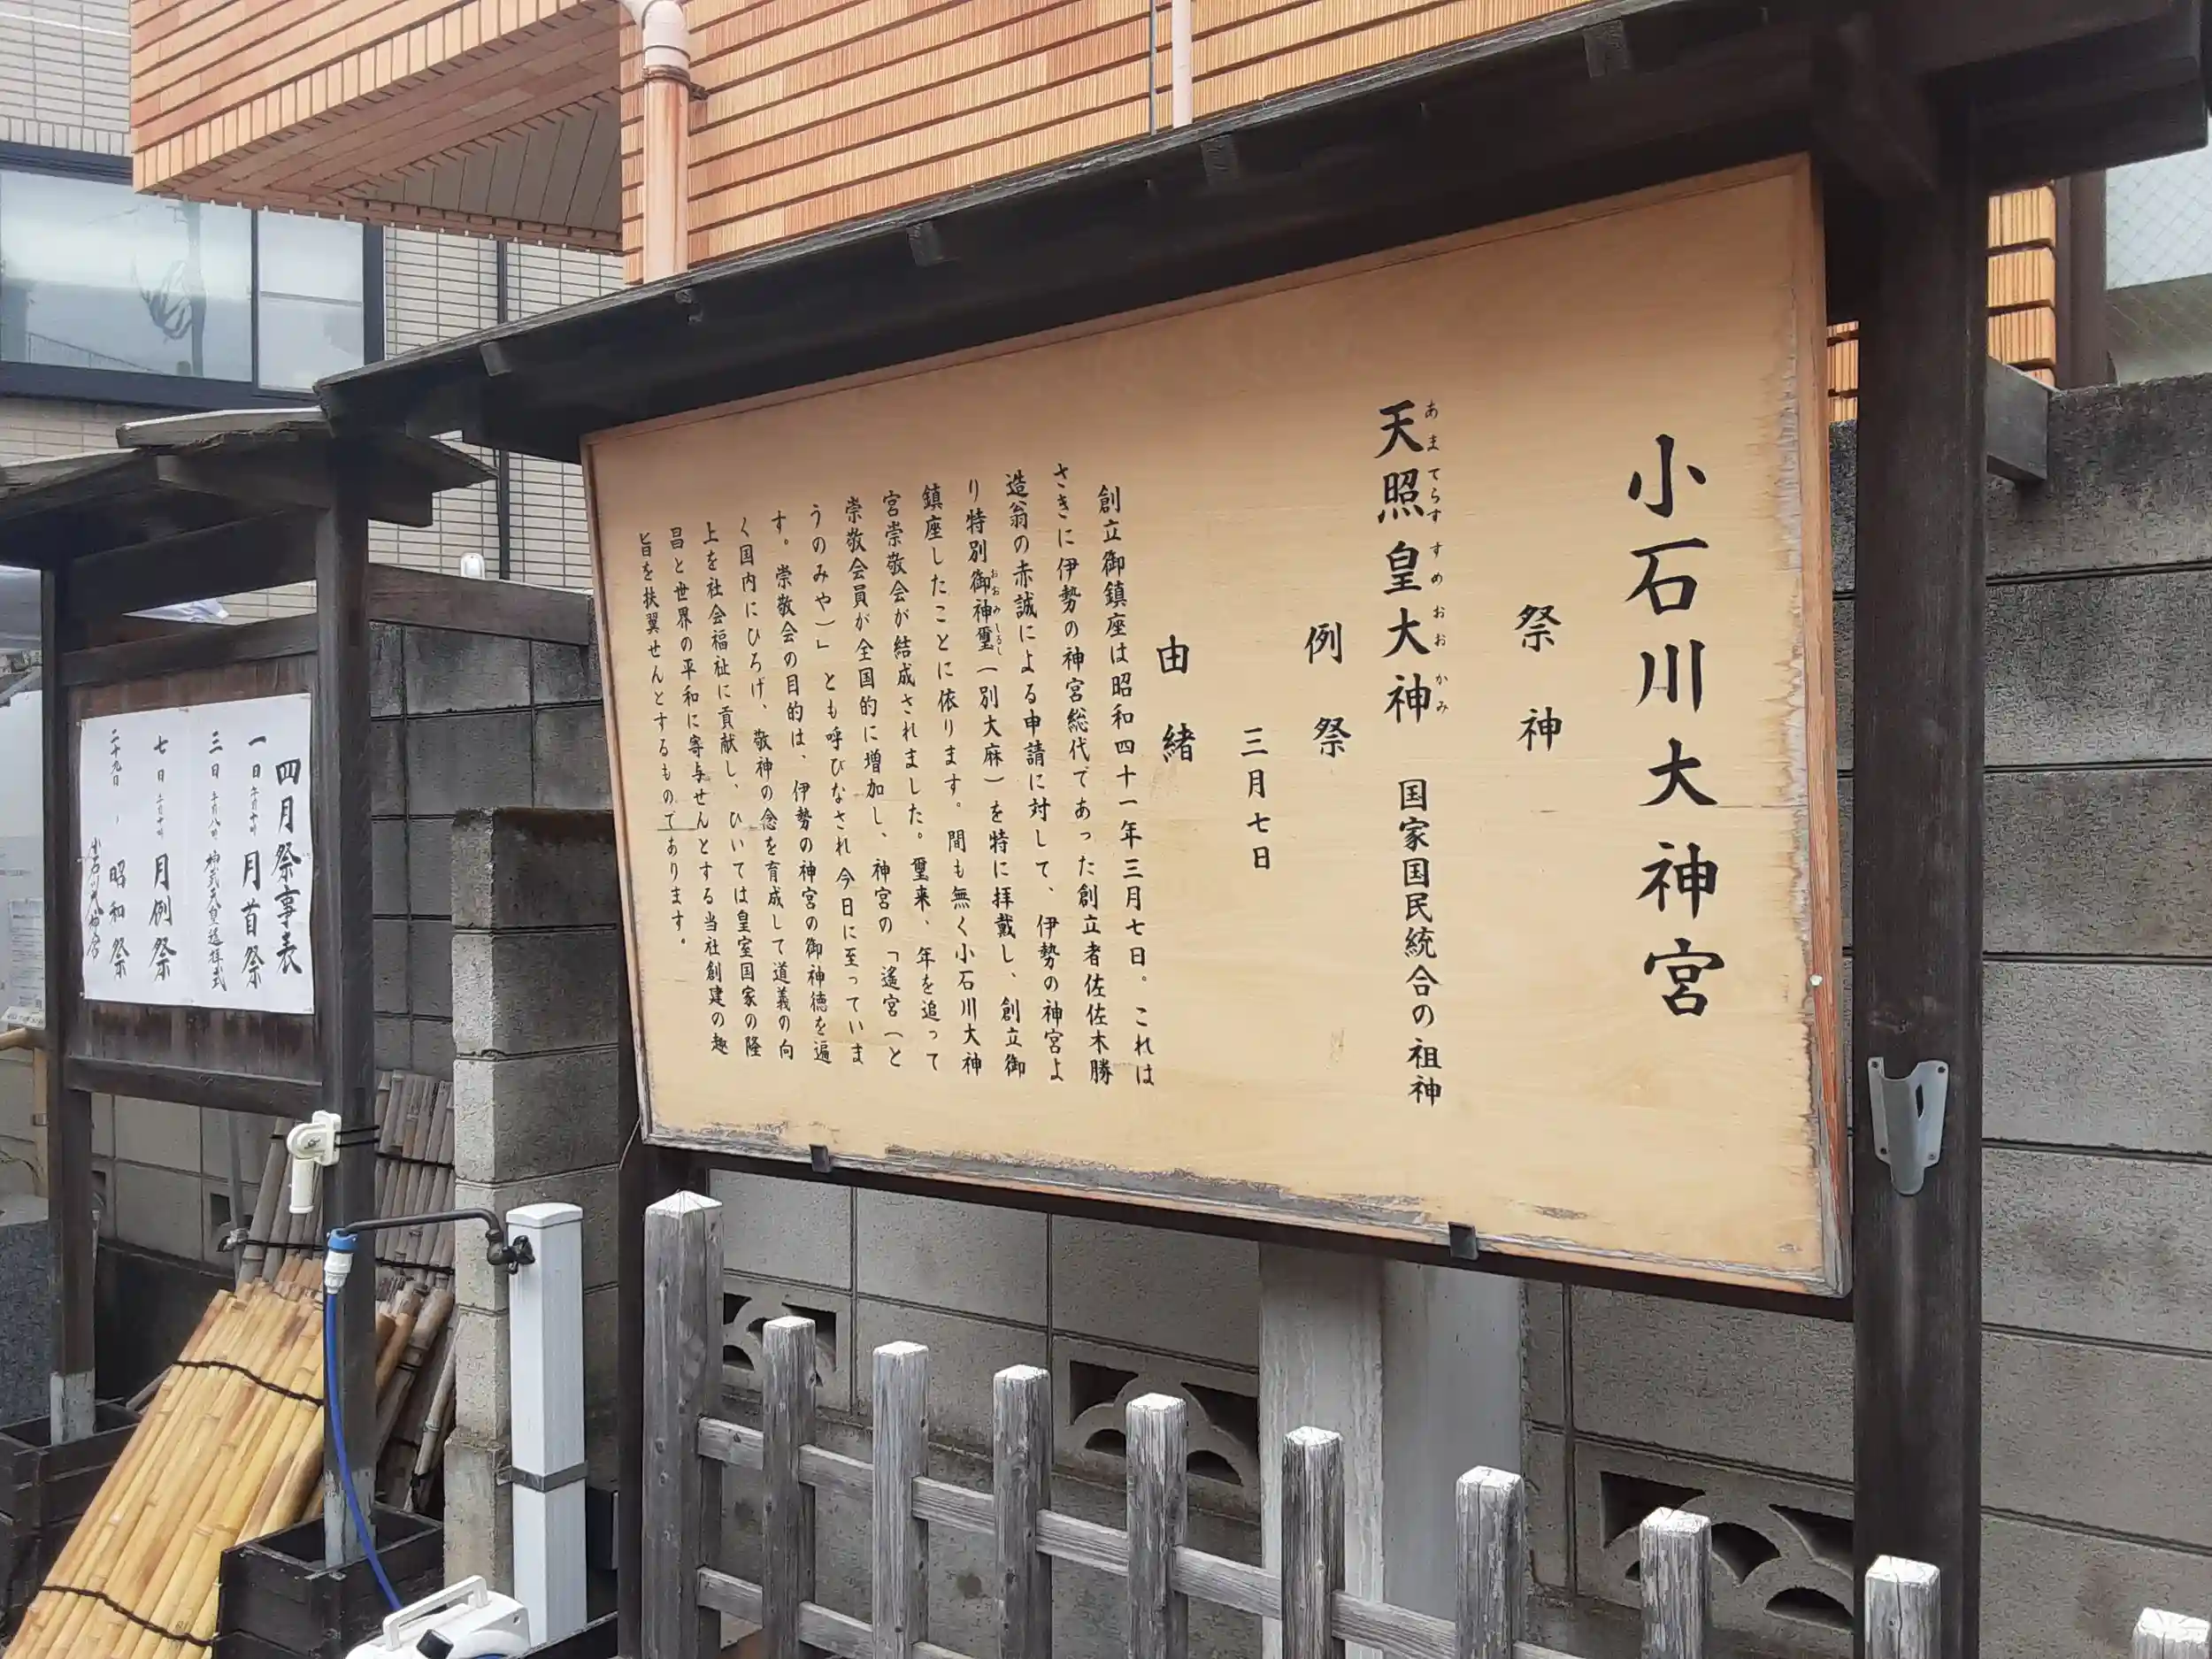 小石川大神宮
祭神
天照皇大神 国家国民統合の祖神
あまてらすすめおおかみ
例祭
三月七日
由緒
創立御鎮座は昭和四十一年三月七日。これは
さきに伊勢の神宮総代であった創立者佐佐木勝
造翁の赤誠による申請に対して、伊勢の神宮よ
り特別御神璽(別大麻)を特に拝戴し、創立御
おおみしるし
鎮座したことに依ります。間も無く小石川大神
宮崇敬会が結成されました。璽来、年を追って
崇敬会員が全国的に増加し、神宮の「遙宮(と
うのみや)」とも呼びなされ今日に至っていま
す。崇敬会の目的は、伊勢の神宮の御神徳を遍
く国内にひろげ、敬神の念を育成して道義の向
上を社会福祉に貢献し、ひいては皇室国家の隆
昌と世界の平和に寄与せんとする当社創建の趣
旨を扶翼せんとするものであります。
四月祭事表
一日 午前十時 月首祭
三日 午前八時 神武天皇遙拝式
七日 午前十時 月例祭
二十九日 〃 昭和祭
小石川大神宮